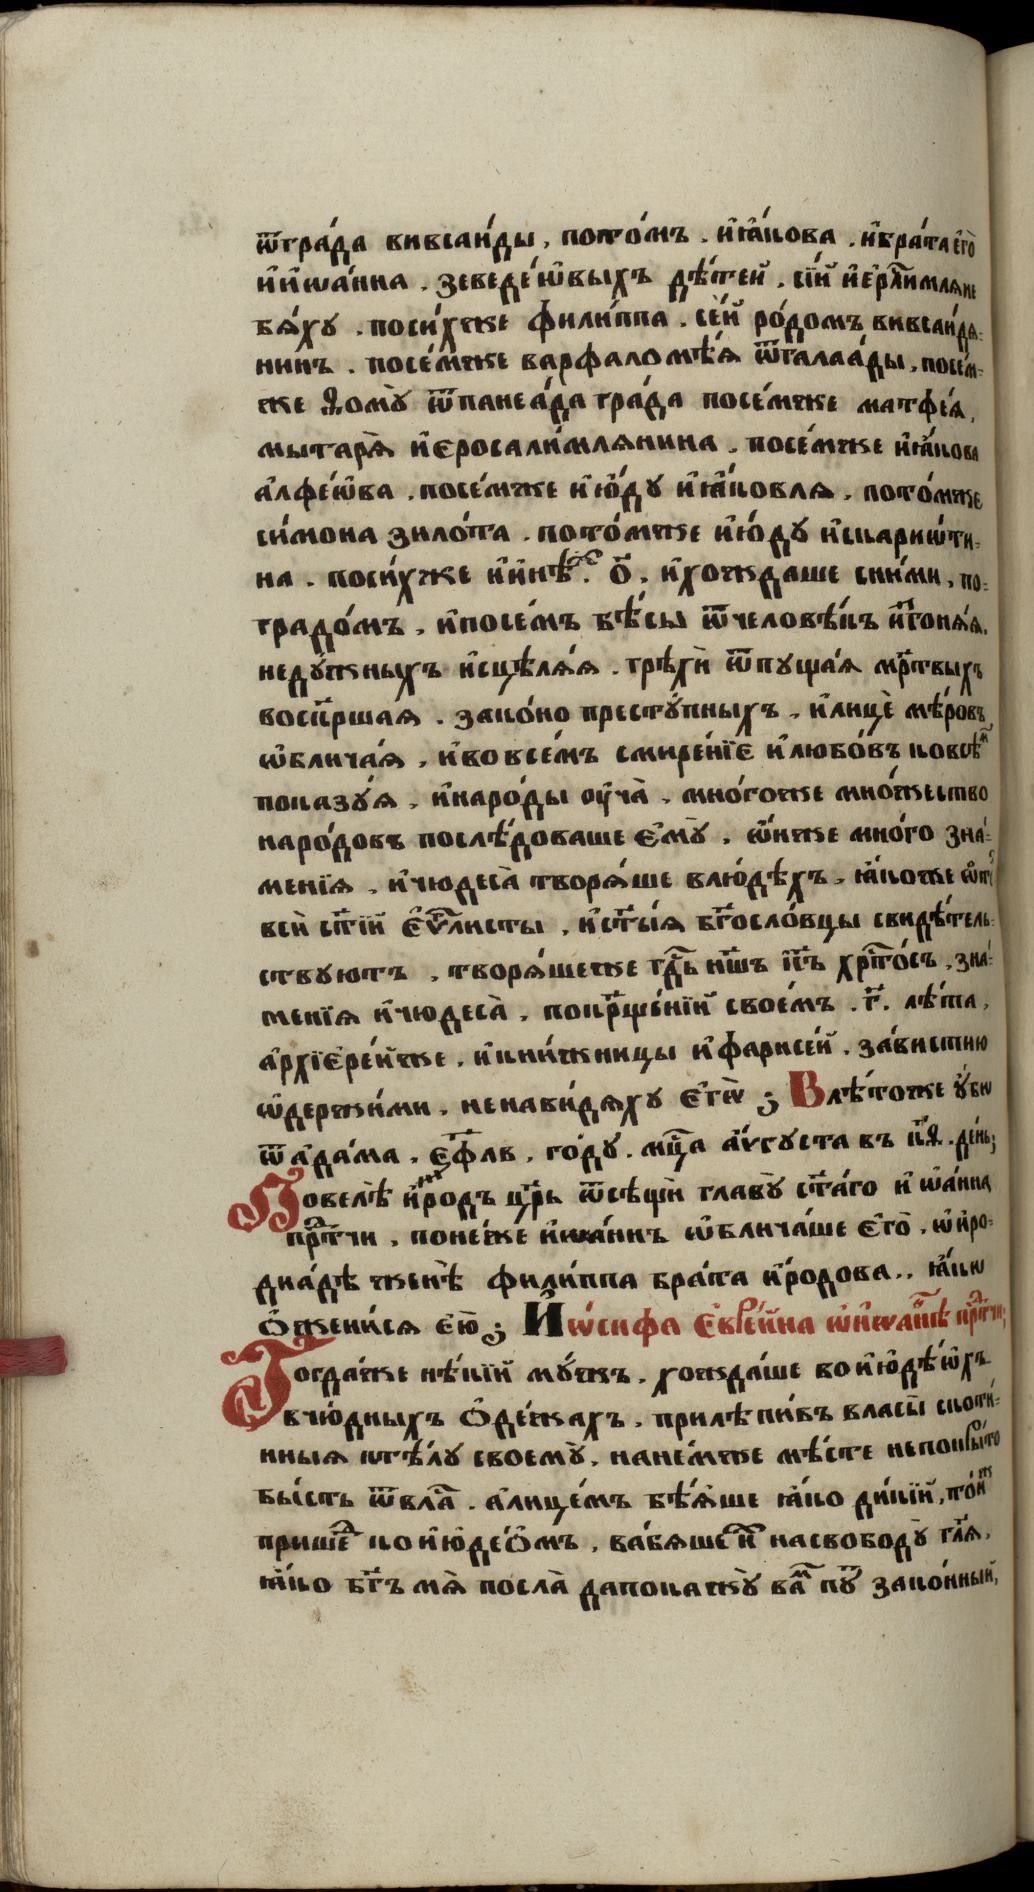 ѿгра́да виѳсаи́ды, пото́мъ. и҆я҆́кова. и҆бра́та є҆го̀
и҆и҆ѡа́нна. зеведе́ѡвыхъ дѣ́тей. сі́и и҆є҆рⷭ҇ли́мляне
бѧ́ху. поси́хже фили́ппа. се́й ро́домъ виѳсаи́дѧ-
нинъ. посе́мже варфаломѣ́ѧ ѿгалаа́ды, посе́м-
же Ѳому̀ ѿпанеа́да гра́да посе́мже матфе́ѧ,
мытарѧ̀ и҆єросали́млѧнина. посе́мже и҆ꙗ҆́кова
а҆лфе́ѡва. посе́мже и҆ю҆́ду и҆ꙗ҆́ковлѧ. пото́мже
си́мона зило́та. пото́мже и҆ю́ду и҆скариѡ́ти-
на. поси́хже и҆и҆нѣ́хъ. о҃. и҆хождаше сни́ми, по-
градо́мъ, и҆посе́мъ бѣ́сы ѿчеловѣ́къ и҆згонѧ́ѧ.
неду́жныхъ и҆сцѣлѧ́ѧ. грѣхѝ ѿпуща́ѧ мр҃твыхъ
воскр҃шаѧ. зако́но престу́пныхъ, и҆лицѐ мѣ́ровъ
ѡ҆блича́ѧ, и҆во все́мъ смире́нїє и҆любо́въ ковсѣ́мъ
показу́ѧ, и҆наро́ды ᲂу҆ча̀, мно́гоже мно́жество
наро́довъ послѣ́доваше є҆му̀, ѡ҆́нже мно́го зна́-
менїѧ, и҆чюдеса̀ творѧ́ше влю́дѣхъ, ꙗ҆́коже ѡ҆то́
всѝ ст҃і́и є҆ѵⷢ҇ли́сты, и҆ст҃ы́ѧ бг҃осло́вцы свидѣ́тель-
ствуютъ, творѧ́шеже гдⷭ҇ь нш҃ъ і҆и҃съ хрⷭ҇то́съ, зна́-
менїѧ и҆чюдеса̀, покрⷳ҇ще́нїи свое́мъ. г҃. лѣ́та,
а҆рхїє҆ре́иже, и҆кни́жницы и҆фарисе́й, за́вистию
ѡ҆держи́ми, ненави́дѧху є҆гѡ̀ ; Влѣ́тоже ᲂу҆́бѡ
ѿа҆да́ма. є҃ф҃л҃в. го́ду. мцⷭ҇а а҆́ѵгуста въ к҃ѳ. де́нь;
Повелѣ̀ и҆́родъ цр҃ь ѿсѣщѝ главу̀ ст҃а́го и҆ѡа́нна
пр҃тчи, поне́же и҆ѡа́ннъ ѡ҆блича́ше є҆го̀. ѡ҆и҆ро-
диа́дѣ женѣ̀ фили́ппа бра́та и҆́родова.. ꙗ҆́кѡ
ѻ҆жени́сѧ є҆ю̀; И҆ѡ́сифа Є҆вре́ина ѡ҆и҆ѡа́ннѣ прⷣтчи;
Тогда́же нѣ́кїй му́жъ. хожда́ше во и҆ю҆дѣ́ѡхъ
вчю́дныхъ ѻ҆де́жахъ, прилѣпи́въ власы̀ скоти́-
нныѧ ктѣ́лу своему̀, нане́мже мѣ́сте непокры́то
бы́сть ѿвла́съ. а҆лице́мъ бѣ́ѧше ꙗ҆́ко ди́кїй, то́иже
прише́дъ ко и҆ю҆де́ѻмъ, ва́бѧше и҆̀хъ насвободу̀ гл҃ѧ,
ꙗ҆́ко бг҃ъ мѧ̀ посла̀ дапокажу̀ ва́мъ пу́ть зако́нный,